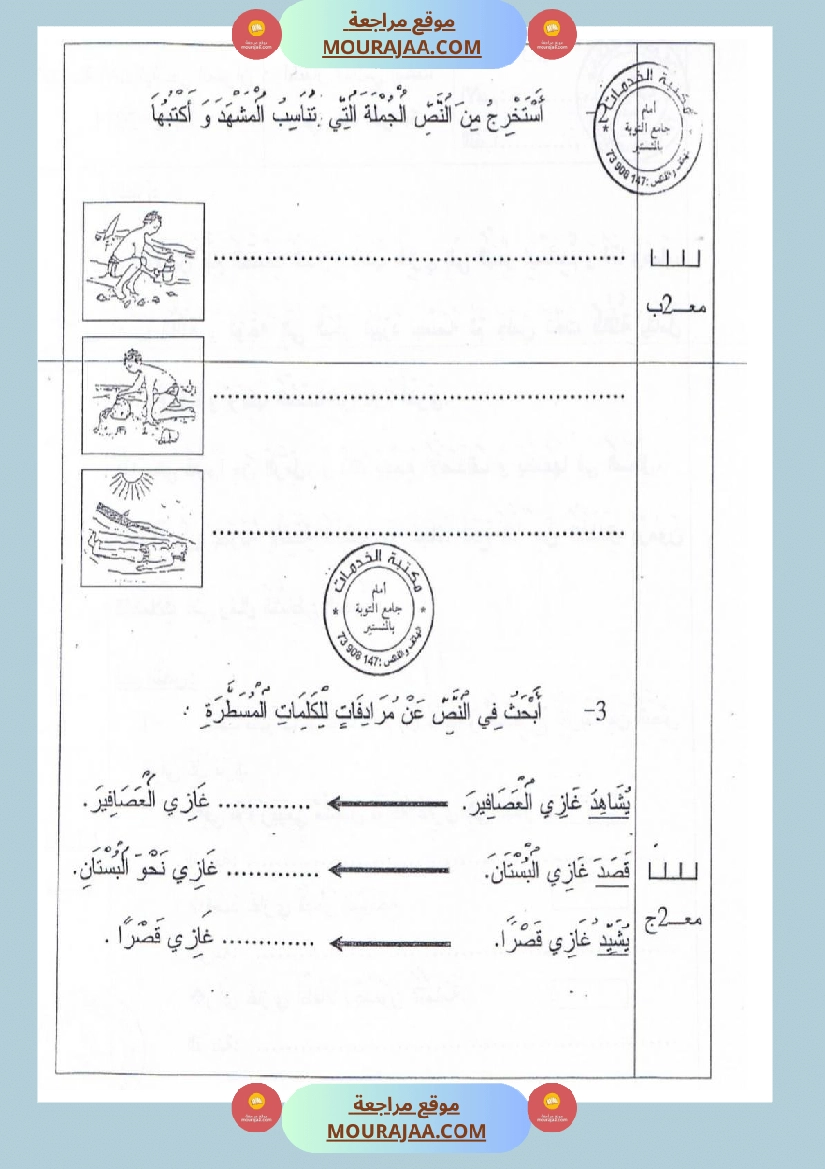 موقع مراجعة
MOURAJAA.COM
أَسْتَخْرِجُ مِنَ النَّصِّ الْجُمْلَةَ الَّتِي تُنَاسِبُ الْمَشْهَدَ وَ أَكْتُبُهَا
مكتبة الخدمات
أمام
جامع التوبة
بالمنستير
الهاتف والفاكس: 147 908 73
معـ2ـب
مكتبة الخدمات
أمام
جامع التوبة
بالمنستير
الهاتف والفاكس: 147 908 73
3- أَبْحَثُ فِي النَّصِّ عَنْ مُرَادِفَاتٍ لِلْكَلِمَاتِ الْمُسَطَّرَةِ :
يُشَاهِدُ غَازِي الْعَصَافِيرَ. ............ غَازِي الْعَصَافِيرَ.
قَصَدَ غَازِي الْبُسْتَانَ. ............ غَازِي نَحْوَ الْبُسْتَانِ.
معـ2ـج
يُشَيِّدُ غَازِي قَصْرًا. ............ غَازِي قَصْرًا .
موقع مراجعة
MOURAJAA.COM